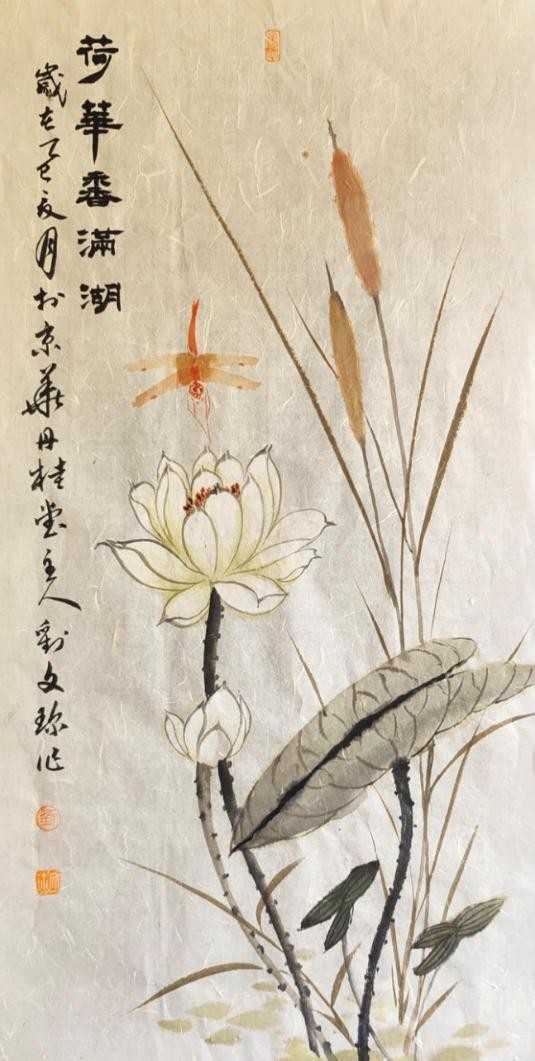 荷華香滿湖
歲在乙巳夏月於京華丹桂堂主人劉文珍作